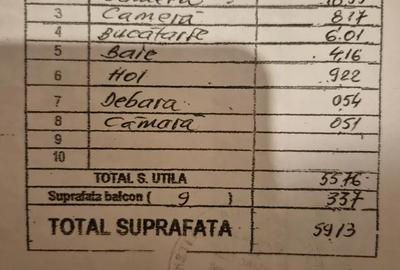 3 Camera 8.17
4 Bucatarie 6.01
5 Baie 4.16
6 Hol 922
7 Debara 054
8 Camară 051
9
10
TOTAL S. UTILA 55.76
Suprafata balcon ( 9 ) 337
TOTAL SUPRAFATA 5913